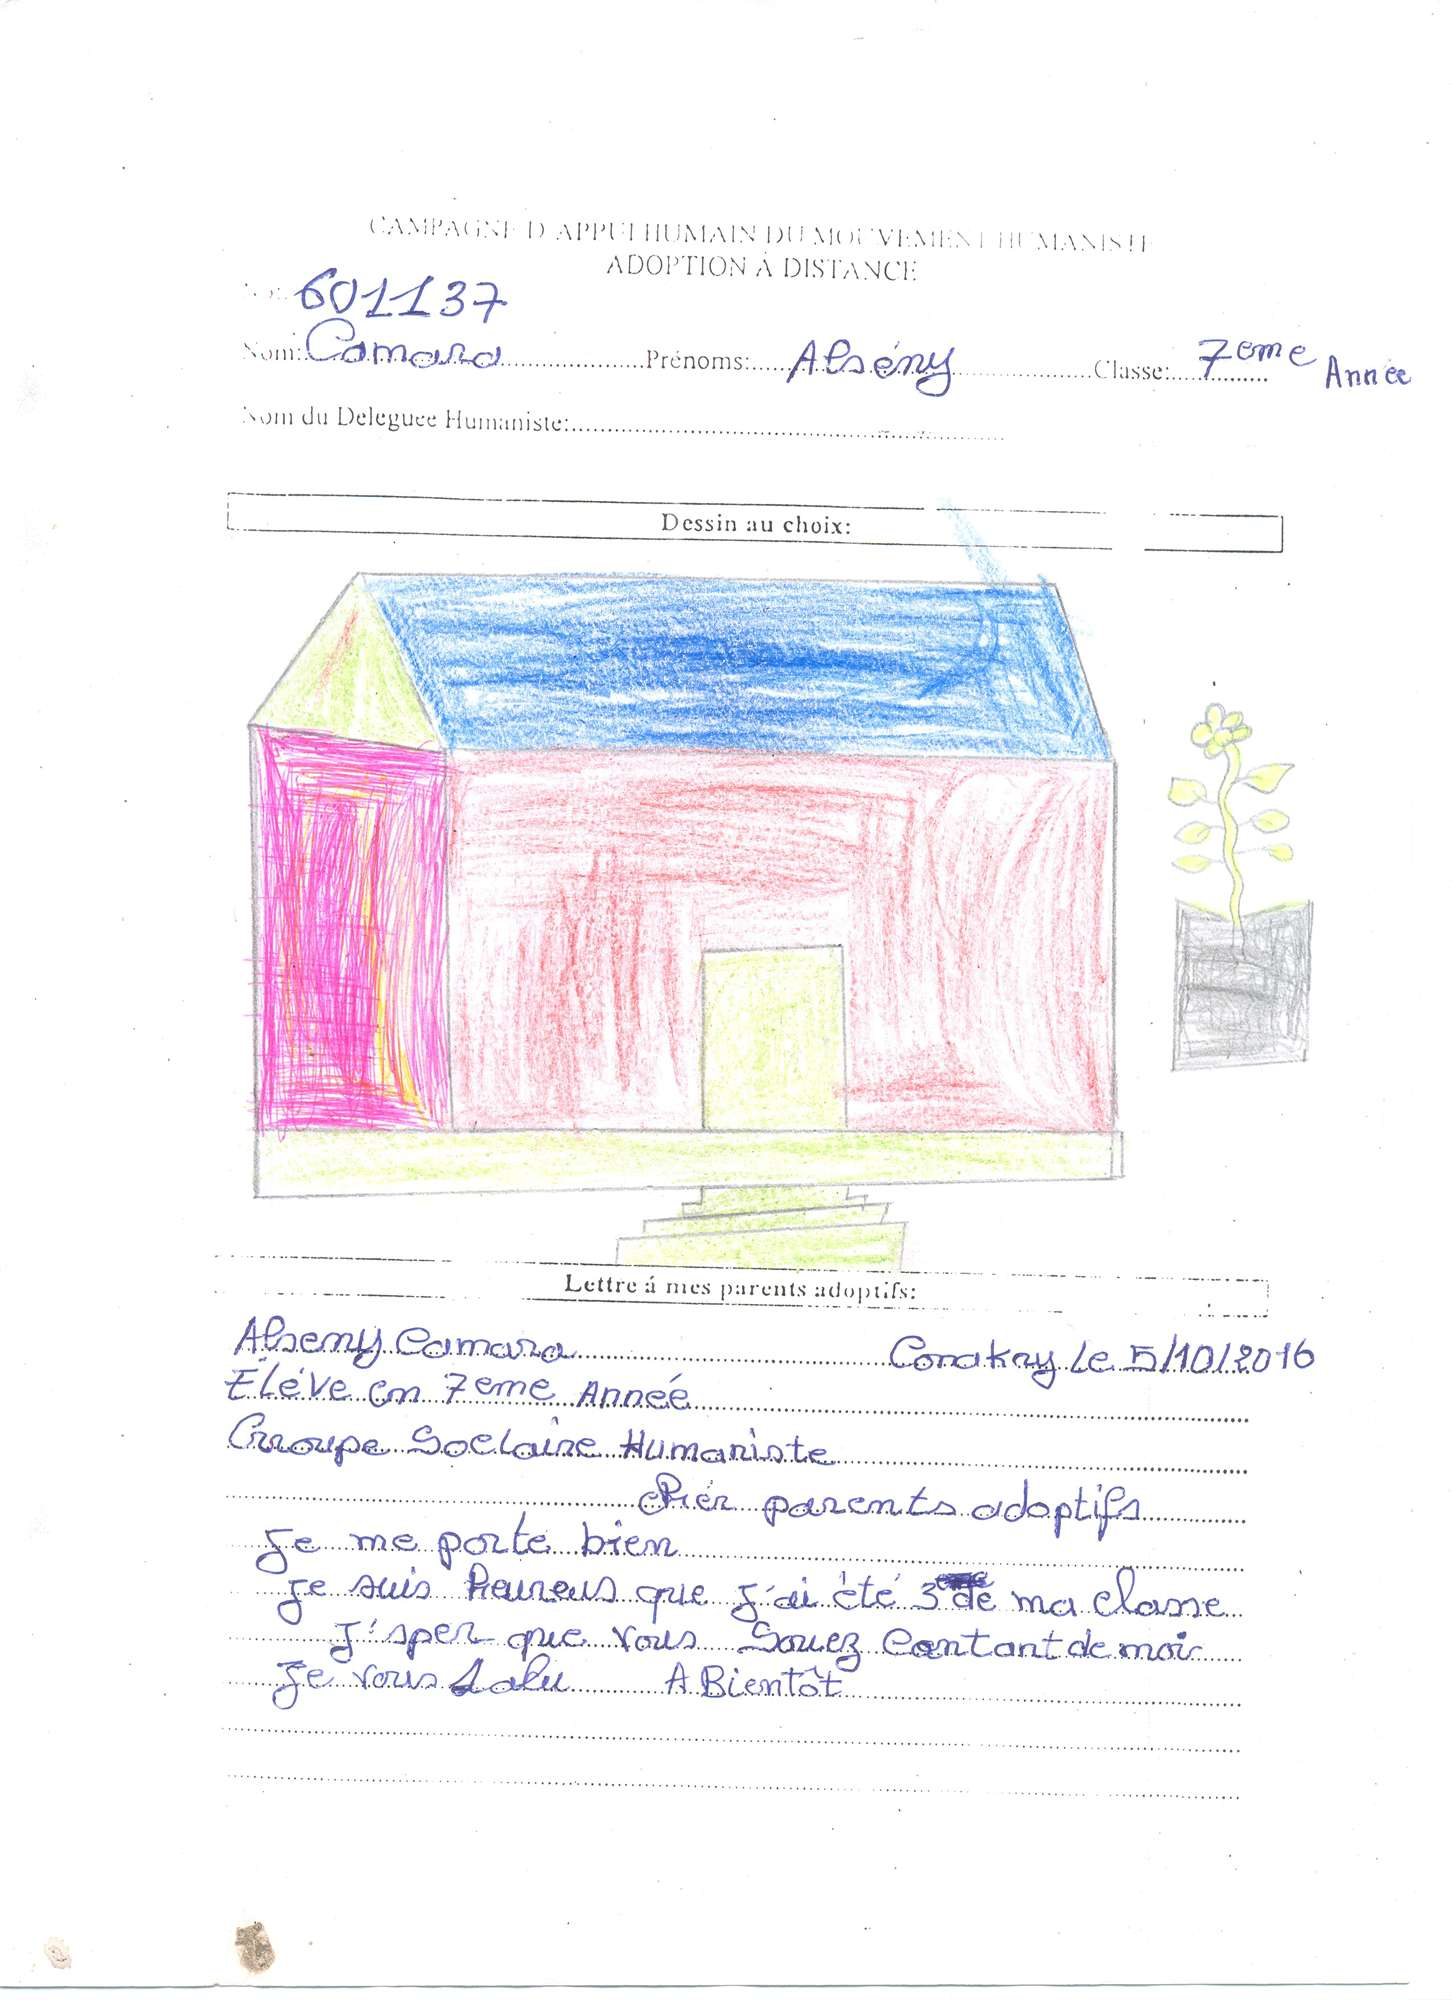 CAMPAGNE D'APPUI HUMAIN DU MOUVEMENT HUMANISTE
ADOPTION À DISTANCE
No: 601137
Nom: Camara Prénoms: Alsény Classe: 7eme Année
Nom du Deleguee Humaniste:
Dessin au choix:
Lettre á mes parents adoptifs:
Alseny Camara Conakry le 5/10/2016
Éléve en 7eme Année
Groupe Soclaire Humaniste
Chér parents adoptifs
Je me porte bien
Je suis heureus que j'ai été 3eme de ma classe
J'sper que vous Souez Contant de moi
Je vous Salu A Bientôt